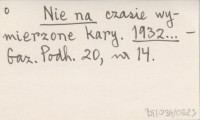 o
Nie na czasie wy-
mierzone kary. 1932... -
Gaz. Podh. 20, nr 14.